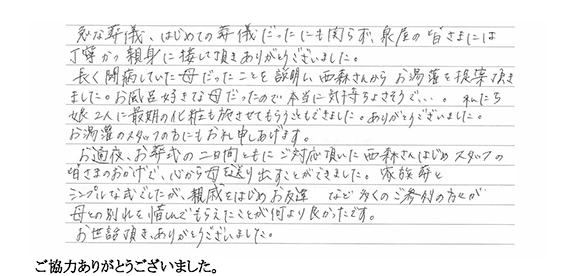 急な葬儀、はじめての葬儀だったにも関らず、泉屋の皆さまには
丁寧かつ親身に接して頂きありがとうございました。
長く闘病していた母だったことを説明し、西森さんからお湯灌を提案頂き
ました。お風呂好きな母だったので本当に気持ちよさそうで…。私たち
娘2人に最期の化粧も施させてもらうこともできました。ありがとうございました。
お湯灌のスタッフの方にもお礼申しあげます。
お通夜、お葬式の二日間ともにご対応頂いた西森さんはじめスタッフの
皆さまのおかげで、心から母を送り出すことができました。家族葬と
シンプルな式でしたが、親戚をはじめお友達など多くのご参列の方々が
母との別れを惜しんでもらえたことが何より良かったです。
お世話頂き、ありがとうございました。
ご協力ありがとうございました。